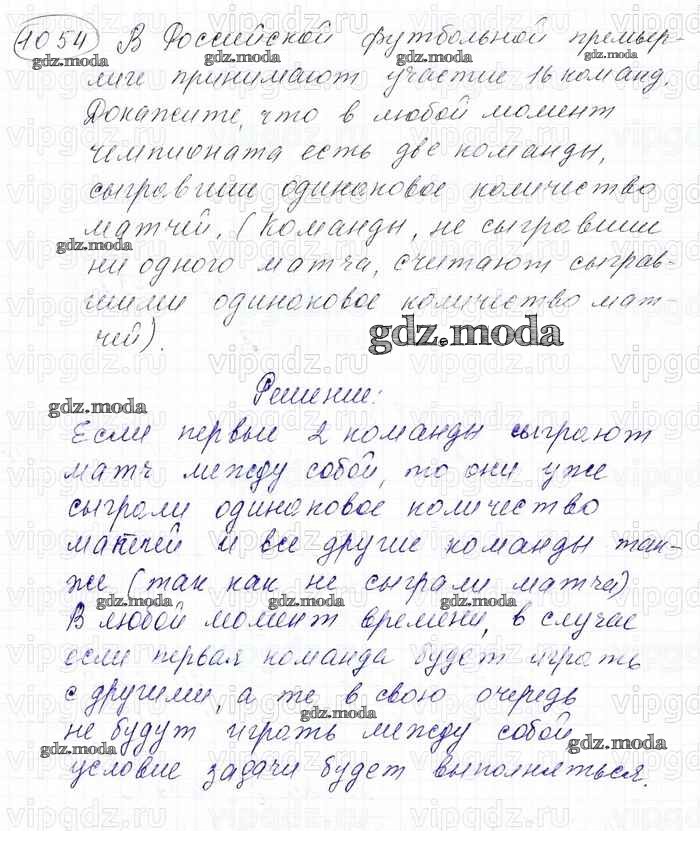 1054 В Российской футбольной премьер-
лиге принимают участие 16 команд.
Докажите, что в любой момент
чемпионата есть две команды,
сыгравшие одинаковое количество
матчей. (Команды, не сыгравшие
ни одного матча, считают сыграв-
шими одинаковое количество мат-
чей).
gdz.moda
Решение:
Если первые 2 команды сыграют
матч между собой, то они уже
сыграли одинаковое количество
матчей и все другие команды так-
же (так как не сыграли матчей)
В любой момент времени, в случае
если первая команда будет играть
с другими, а те в свою очередь
не будут играть между собой
условие задачи будет выполняться.